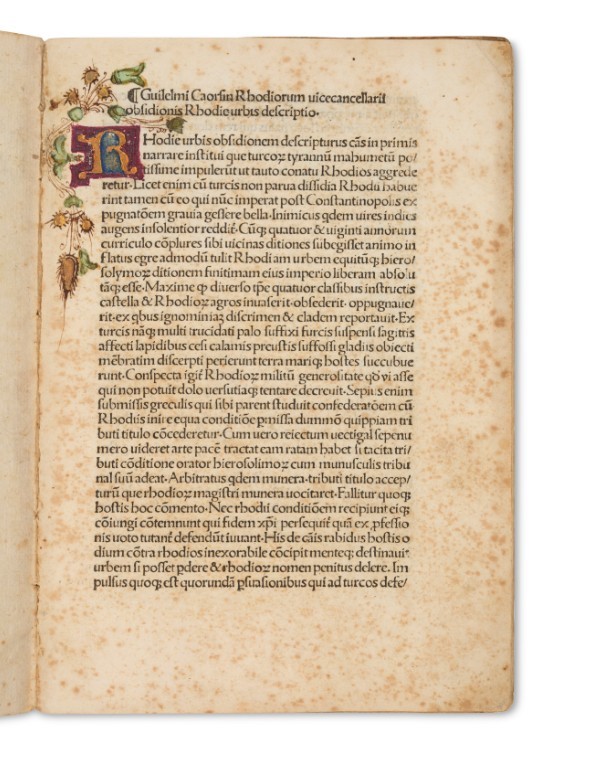 ¶ Guilelmi Caorsin Rhodiorum uicecancellarii
obsidionis Rhodie urbis descriptio.
RHodie urbis obsidionem descripturus cãs in primis
narrare institui que turcoꝝ tyrannũ mahumetũ po/
tissime impulerũt ut tauto conatu Rhodios aggrede
retur. Licet enim cũ turcis non parua dissidia Rhodii habue
rint tamen cũ eo qui nũc imperat post Constantinopolis ex
pugnatõem grauia gessere bella. Inimicus qdem uires indies
augens insolentior redditˀ. Cũqꝫ quatuor & uiginti annorum
curriculo cõplures sibi uicinas ditiones subegisset animo in
flatus egre admodũ tulit Rhodiam urbem equitũqꝫ hiero/
solymoꝝ ditionem finitimam eius imperio liberam absolu
tãqꝫ esse. Maxime ꝙ diuerso tꝑe quatuor classibus instructis
castella & Rhodioꝝ agros inuaserit. obsederit. oppugnaue/
rit. ex qbus ignominiaꝫ discrimen & cladem reportauit. Ex
turcis nãqꝫ multi trucidati palo suffixi furcis suspensi sagittis
affecti lapidibus cesi calamis preustis suffossi gladiis obiecti
mẽbratim discerpti perierunt terra mariqꝫ hostes succubue
runt. Conspecta igitˀ Rhodioꝝ militũ generositate qđ ui asse
qui non potuit dolo uersutiaqꝫ tentare decreuit. Sepius enim
submissis greculis qui sibi parent studuit confederatõem cũ
Rhodiis inire equa conditiõe ꝑmissa dummõ quippiam tri
buti titulo cõcederetur. Cum uero reiectum uectigal sepenu
mero uideret arte pacẽ tractat eam ratam habet si tacita tri/
buti cõditione orator hierosolimoꝝ cum munusculis tribu
nal suũ adeat. Arbitratus qdem munera. tributi titulo accep/
turũ que rhodioꝝ magistri munera uocitaret. Fallitur quoqꝫ
hostis hoc cõmento. Nec rhodii conditiõem recipiunt eiqꝫ
cõiungi cõtemnunt qui fidem xp̃i persequitˀ quã ex ꝓfessio
nis uoto tutantˀ defendũt iuuant. His de cãis rabidus hostis o
dium cõtra rhodios inexorabile cõcipit menteqꝫ destinauit
urbem si posset ꝑdere & rhodioꝝ nomen penitus delere. Im
pulsus quoqꝫ est quorundã ꝑsuasionibus qui ad turcos defe/